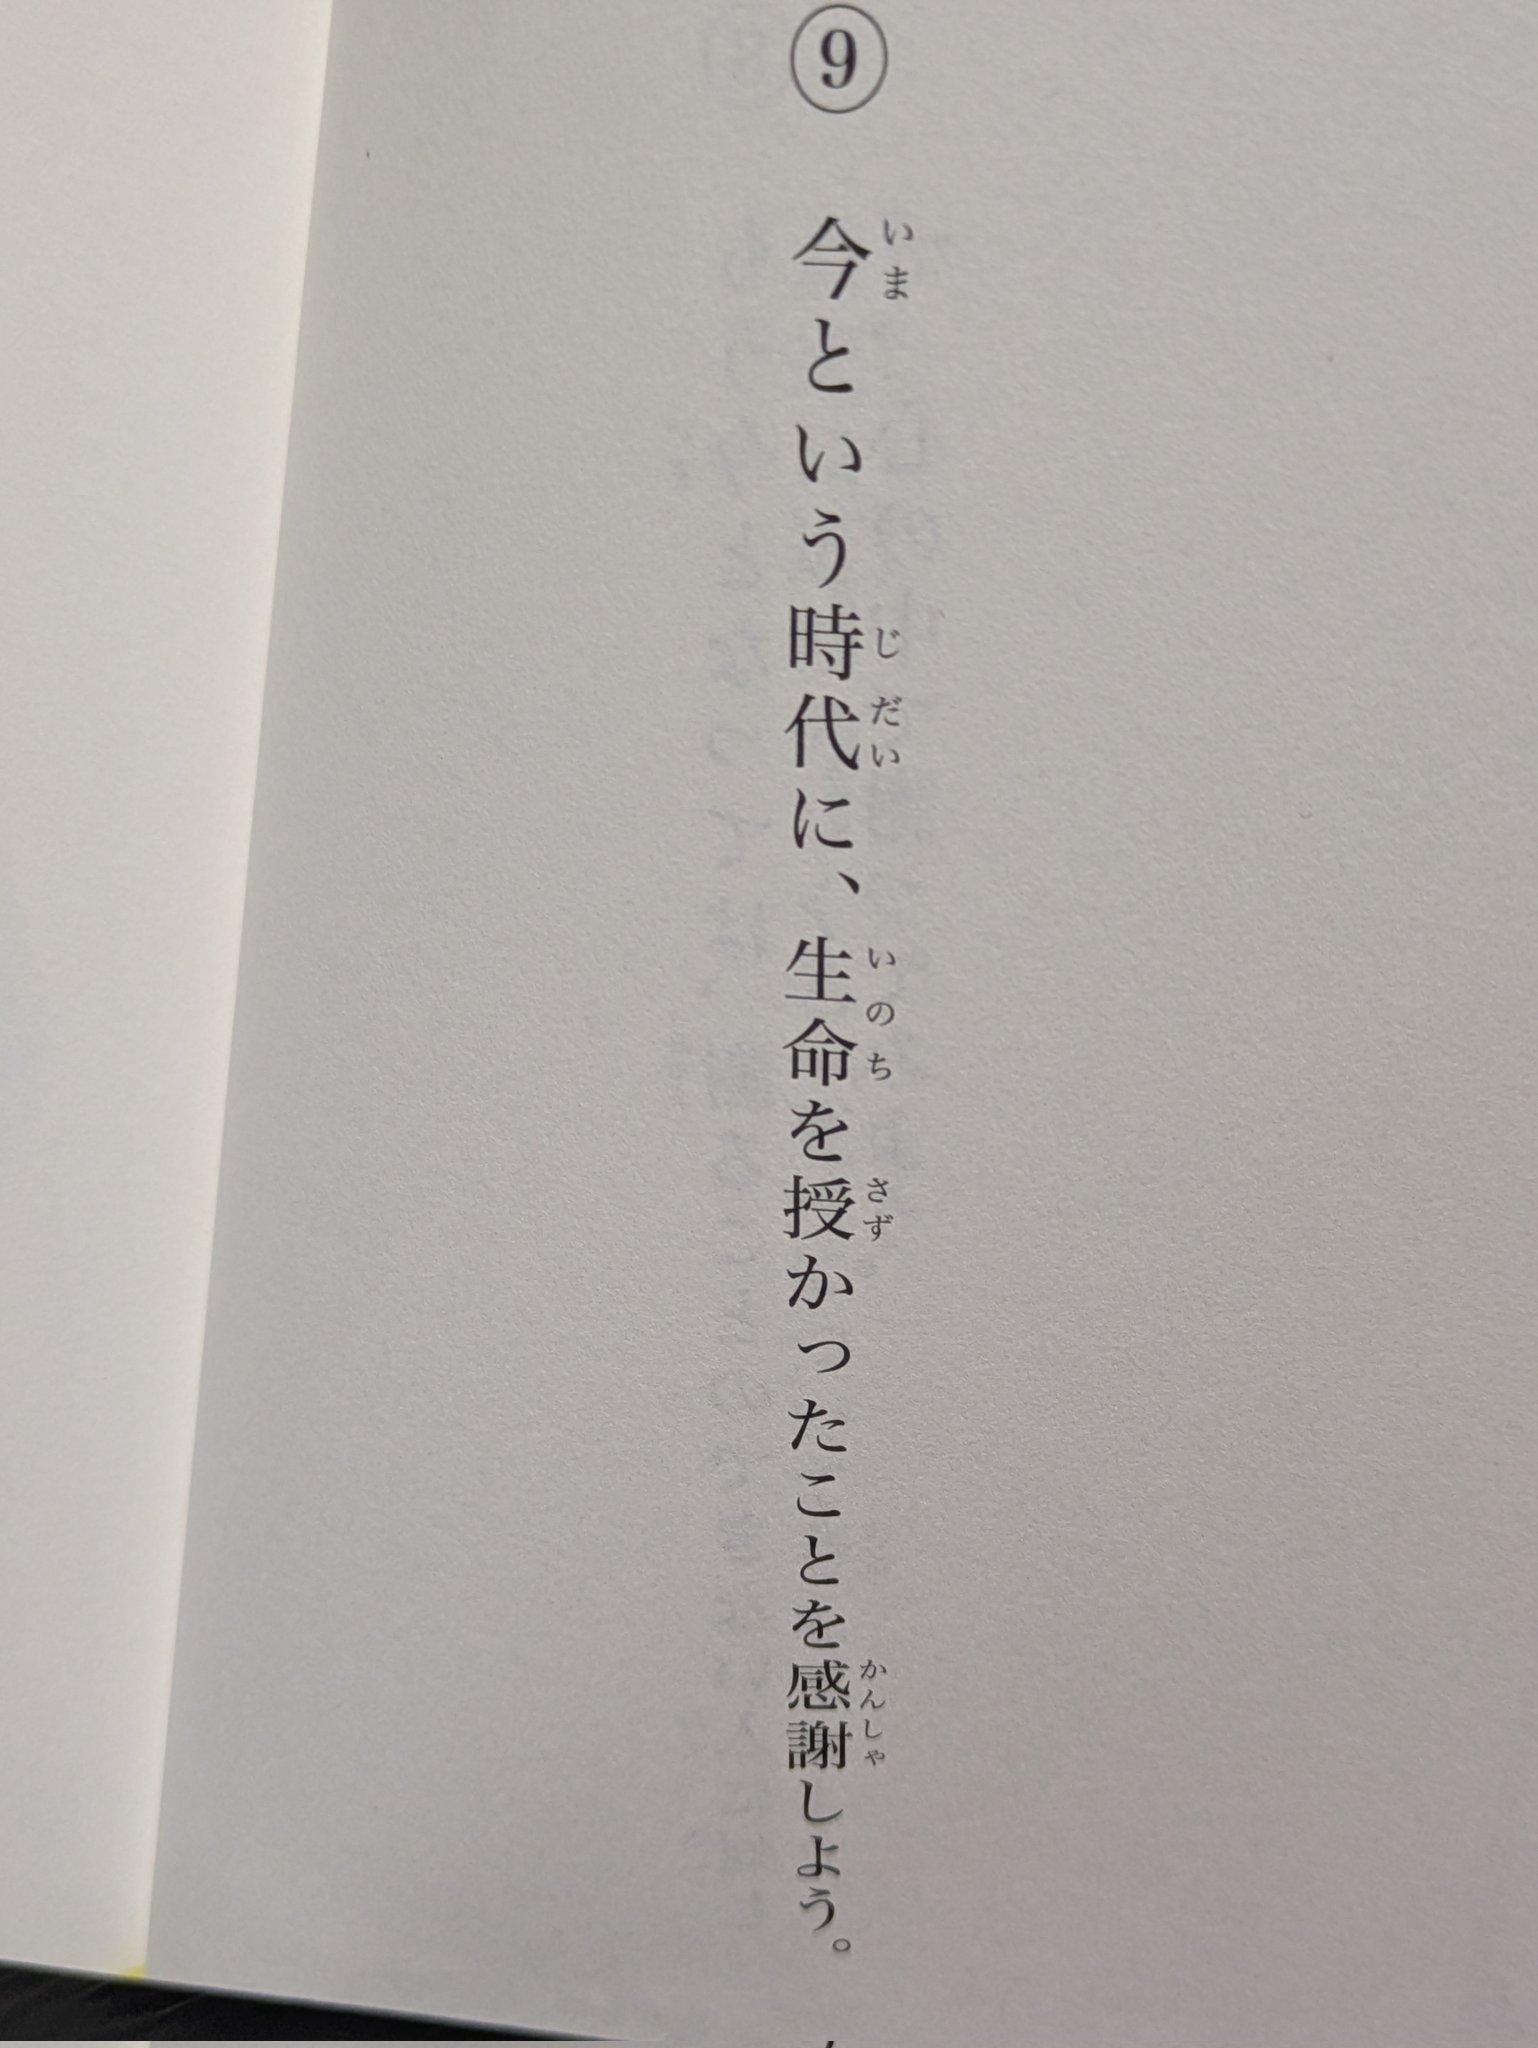 ⑨ 今という時代に、生命を授かったことを感謝しよう。
いま じだい いのち さず かんしゃ